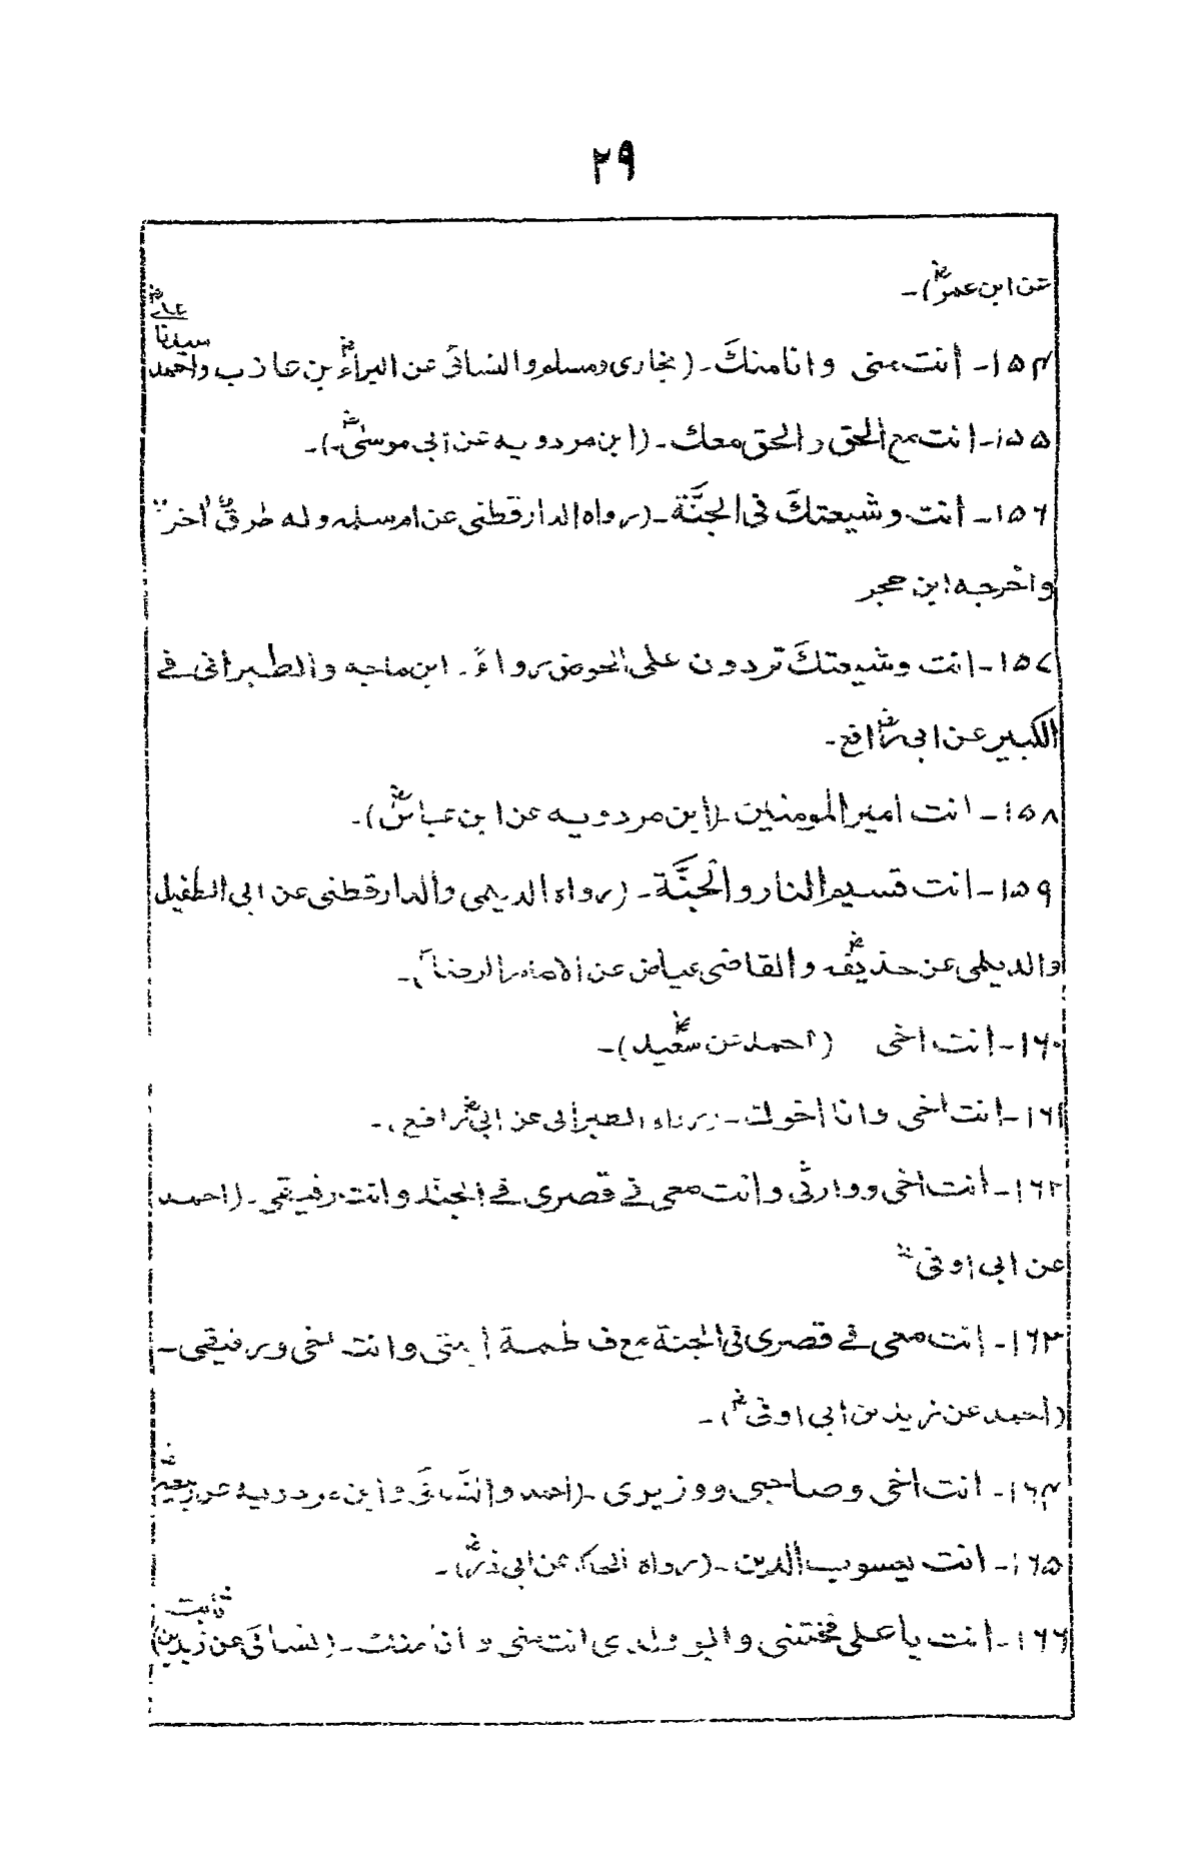 ۲۹
عن ابن عمرؓ)۔
۱۵۴۔ أنت منی وانا منكَ۔ (بخاری ومسلم والنسائی عن البراءؓ بن عازب واحمد سیدنا علیؓ
۱۵۵۔ انت مع الحق والحق معك۔ (ابن مردویہ عن ابی موسیٰؓ)۔
۱۵۶۔ أنت وشیعتكَ فی الجنَّة۔ (رواہ الدارقطنی عن ام سلمہ ولہ طرقٌ أخر
واخرجہ ابن حجر
۱۵۷۔ انت وشیعتكَ تردون علی الحوض رواءً۔ ابن ماجہ والطبرانی فے
الکبیر عن ابی رافعؓ۔
۱۵۸۔ انت امیر المومنین۔ (ابن مردویہ عن ابن عباسؓ)۔
۱۵۹۔ انت قسیم النار والجنَّة۔ (رواہ الدیلمی والدارقطنی عن ابی الطفیل
والدیلمی عن حذیفہؓ والقاضی عیاض عن الامام الرضا)۔
۱۶۰۔ انت اخی (احمد عن سعیدؓ)۔
۱۶۱۔ انت اخی وانا اخوك۔ (رواہ الطبرانی عن ابی رافعؓ)۔
۱۶۲۔ انت اخی ووارثی وانت معی فے قصری فے الجنة وانت رفیقی۔ (احمد
عن ابی اوفیؓ
۱۶۳۔ انت معی فے قصری فی الجنة مع فاطمة ابنتی وانت اخی ورفیقی۔
(احمد عن زید بن ابی اوفیؓ)۔
۱۶۴۔ انت اخی وصاحبی ووزیری۔ (احمد والنسائی وابن مردویہ عن
۱۶۵۔ انت یعسوب الدین۔ (رواہ الحاکم عن ابی ذرؓ)۔
۱۶۶۔ انت یا علی فختنی وابو ولدی انت منی وانا منك۔ (النسائی عن زید بن ثابت)